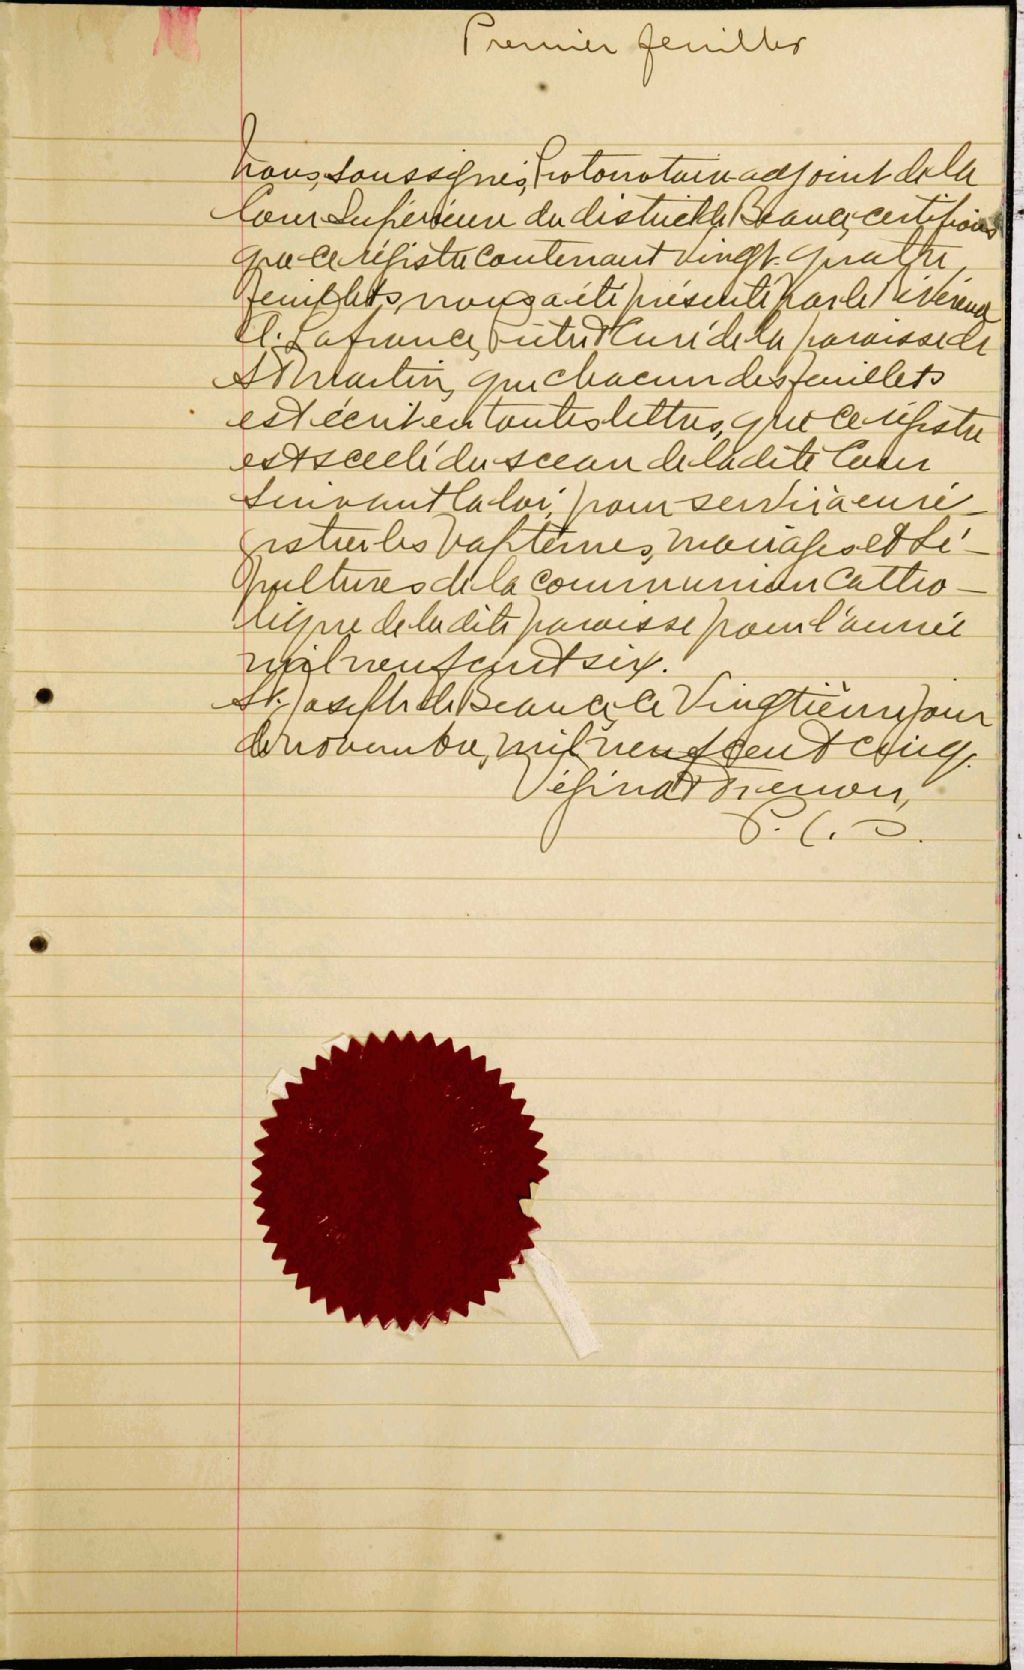 Premier feuillet
Nous, soussigné, Protonotaire adjoint de la
Cour Supérieure du district de Beauce, certifions
que ce régistre contenant vingt-quatre
feuillets, nous a été présenté par le Révérend
Lafrance, Prêtre Curé de la paroisse de
St Martin, que chacun des feuillets
est écrit en toutes lettres, que ce régistre
est scellé du sceau de la dite Cour
suivant la loi, pour servir à enré-
gistrer les baptêmes, mariages et Sé-
pultures de la communion Catho-
lique de la dite paroisse pour l'année
mil neuf cent six.
St. Joseph de Beauce, ce Vingtième jour
de novembre, mil neuf cent cinq.
P. C. S.